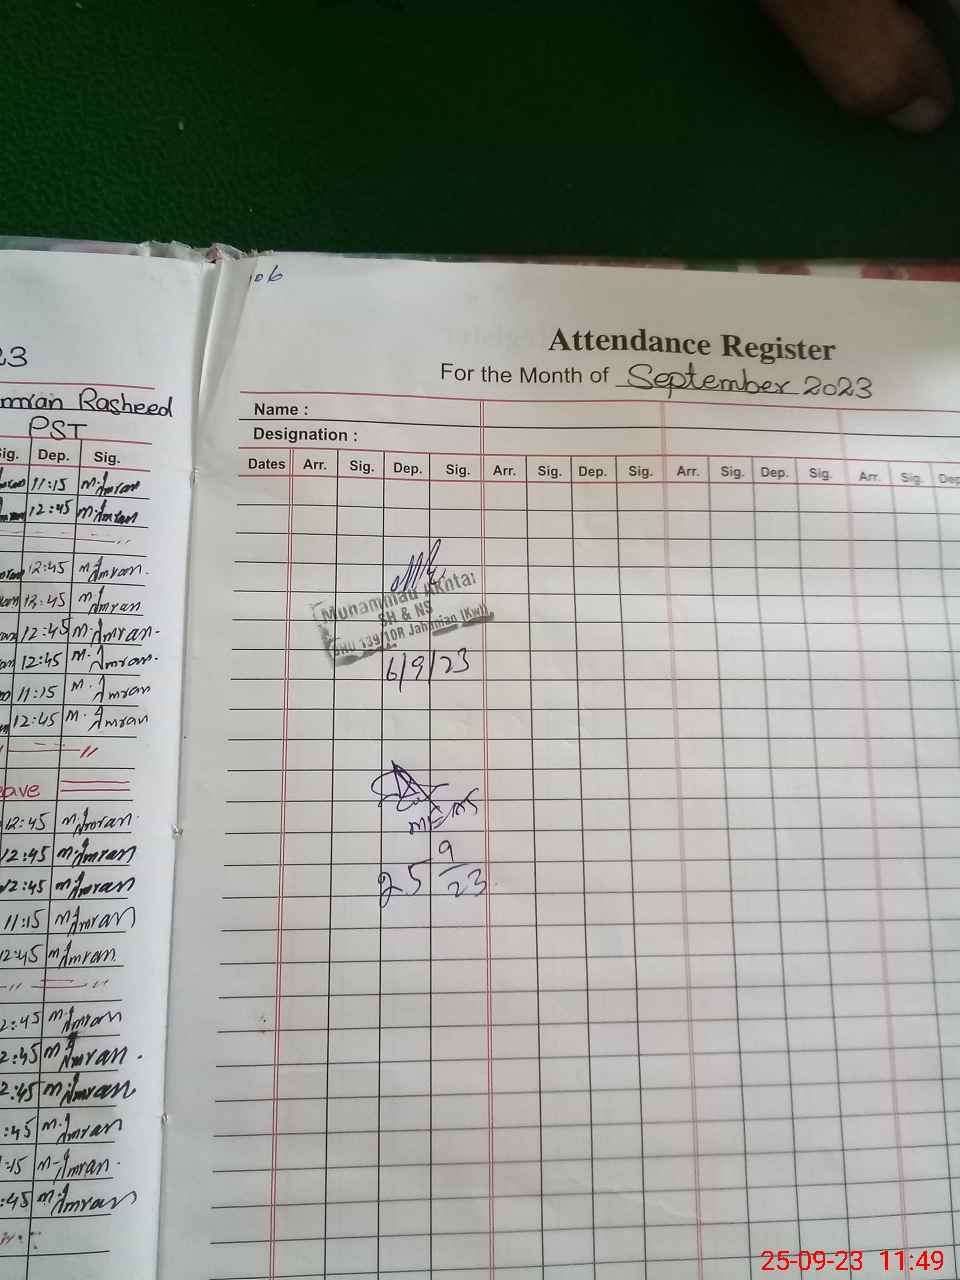 23
mran Rasheed
PST
ig. Dep. Sig.
11:15 M.Imran
12:45 M.Imran
12:45 M.Imran.
12:45 M.Imran
12:45 M.Imran-
12:45 M.Imran.
11:15 M.Imran
12:45 M.Imran
eave
12:45 M.Imran.
12:45 M.Imran
12:45 M.Imran
11:15 M.Imran
12:45 M.Imran.
2:45 M.Imran
2:45 M.Imran.
2:45 M.Imran
:45 M.Imran
:15 M-Imran.
:45 M.Imran
Attendance Register
For the Month of September 2023
Name :
Designation :
Dates Arr. Sig. Dep. Sig. Arr. Sig. Dep. Sig. Arr. Sig. Dep. Sig. Arr. Sig. Dep
Muhammad Akhtar
SH & NS
BHU 139/10R Jahanian (Kwl)
6/9/23
25 9/23
25-09-23 11:49